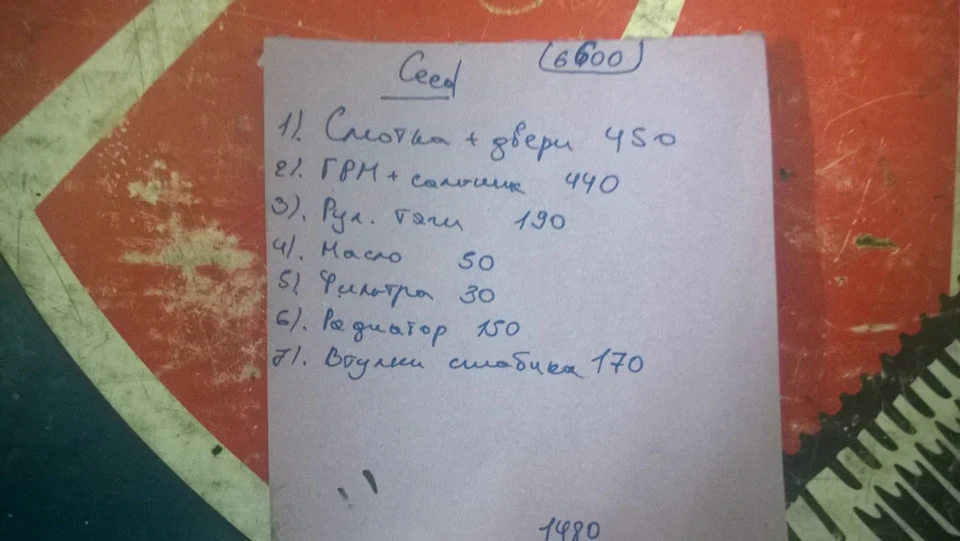 Ceed (6600)
1). Смотка + двери 450
2). ГРМ + сальник 440
3). Рул. тяги 190
4). Масло 50
5). Фильтра 30
6). Радиатор 150
7). Втулки стабика 170
1480